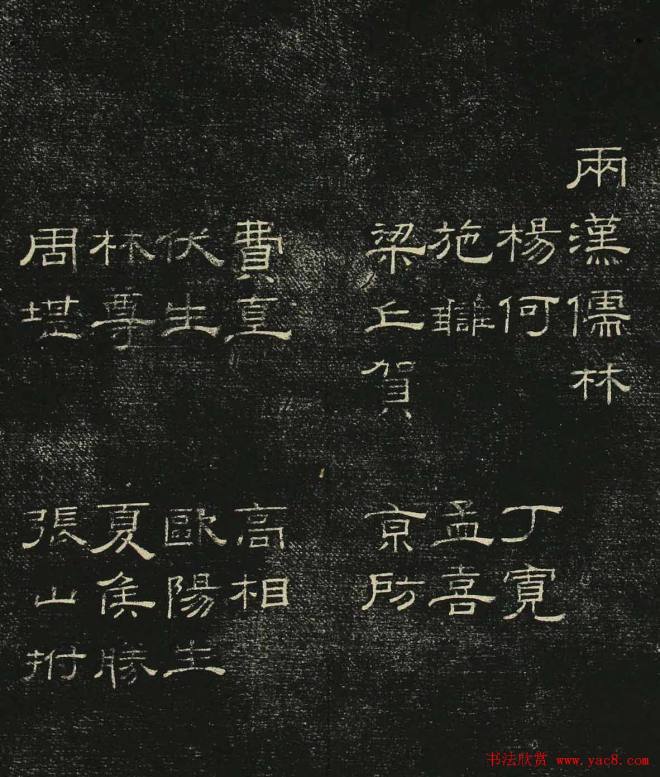 兩漢儒林
楊何 丁寬
施讎 孟喜
梁丘賀 京房
費直 高相
伏生 歐陽生
林尊 夏侯勝
周堪 張山拊
书法欣赏 www.yac8.com